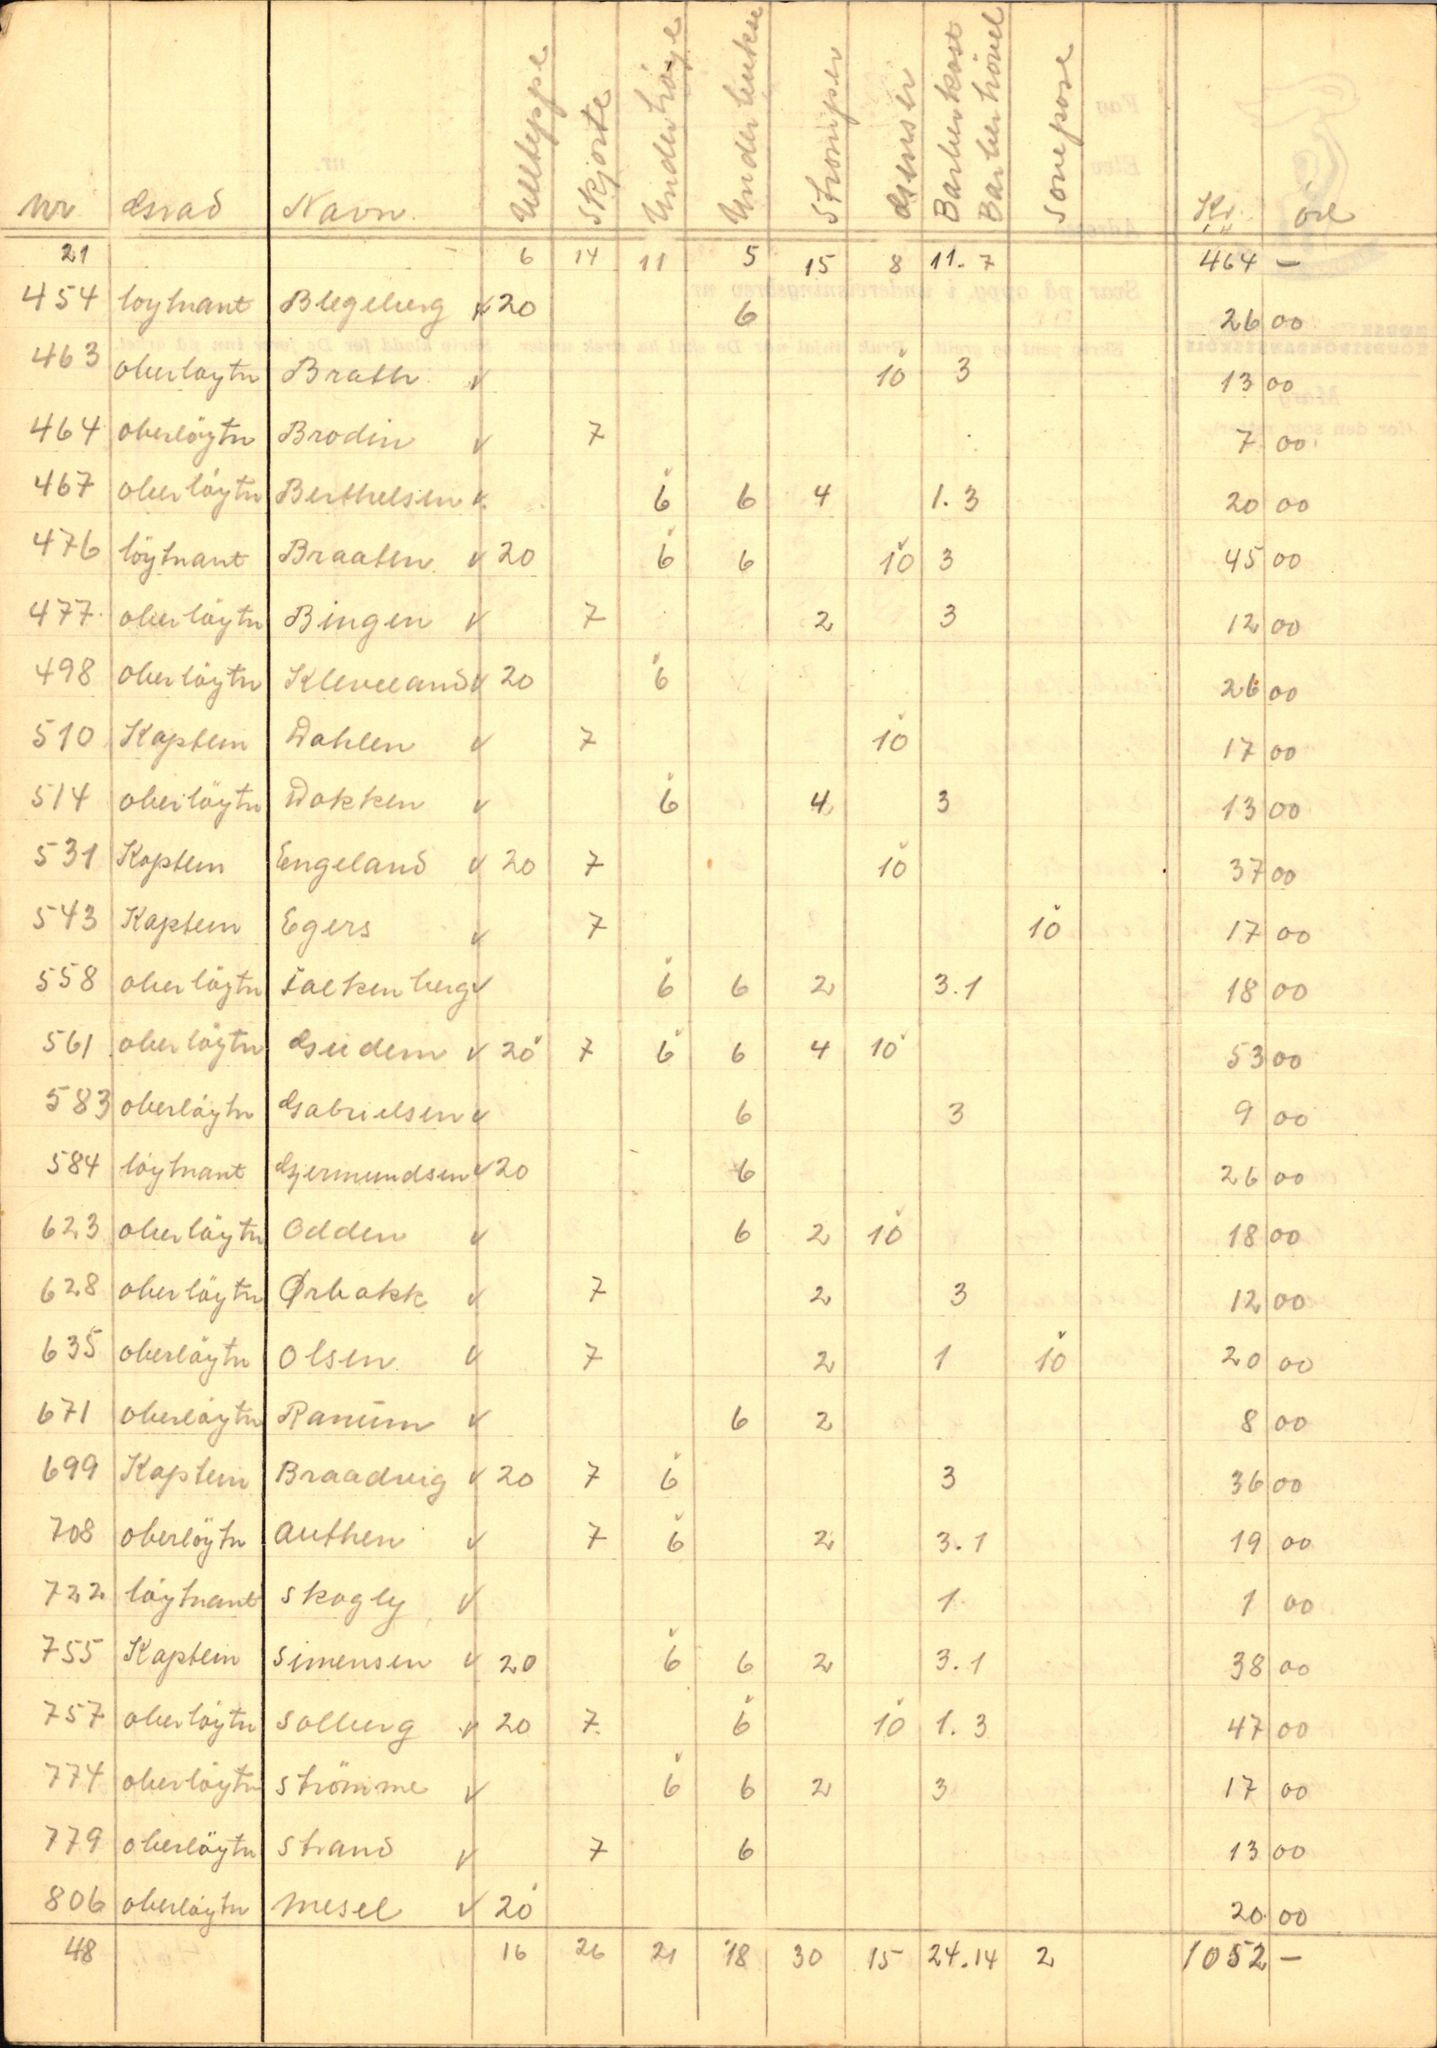 Nr Grad Navn Ullteppe Skjorte Undertröye Underbukse Strömper Genser Barberkost Barberhövel Sovepose Kr. öre
21 6 14 11 5 15 8 11. 7 464 —
454 löytnant Blegeberg v 20 6 26 00
463 oberløytn Brath v 10 3 13 00
464 oberlöytn Brodin v 7 7 00
467 oberlöytn Berthelsen v 6 6 4 1. 3 20 00
476 löytnant Braaten v 20 6 6 10 3 45 00
477 oberlöytn Bingen v 7 2 3 12 00
498 oberlöytn Kleveland v 20 6 26 00
510 Kaptein Dahlen v 7 10 17 00
514 oberlöytn Dokken v 6 4 3 13 00
531 Kaptein Engeland v 20 7 10 37 00
543 Kaptein Egers v 7 10 17 00
558 oberlöytn Falkenberg v 6 6 2 3.1 18 00
561 oberlöytn Gudem v 20 7 6 6 4 10 53 00
583 oberlöytn Gabrielsen v 6 3 9 00
584 löytnant Gjermundsen v 20 6 26 00
623 oberlöytn Odden v 6 2 10 18 00
628 oberlöytn Ørbakk v 7 2 3 12 00
635 oberlöytn Olsen v 7 2 1 10 20 00
671 oberlöytn Ranum v 6 2 8 00
699 Kaptein Braadvig v 20 7 6 3 36 00
708 oberlöytn Authen v 7 6 2 3.1 19 00
722 löytnant Skogly v 1 1 00
755 Kaptein Simensen v 20 6 6 2 3.1 38 00
757 oberlöytn Solberg v 20 7 6 10 1. 3 47 00
774 oberlöytn Strömme v 6 6 2 3 17 00
779 oberlöytn Strand v 7 6 13 00
806 oberlöytn Mesel v 20 20 00
48 16 26 21 18 30 15 24.14 2 1052 —